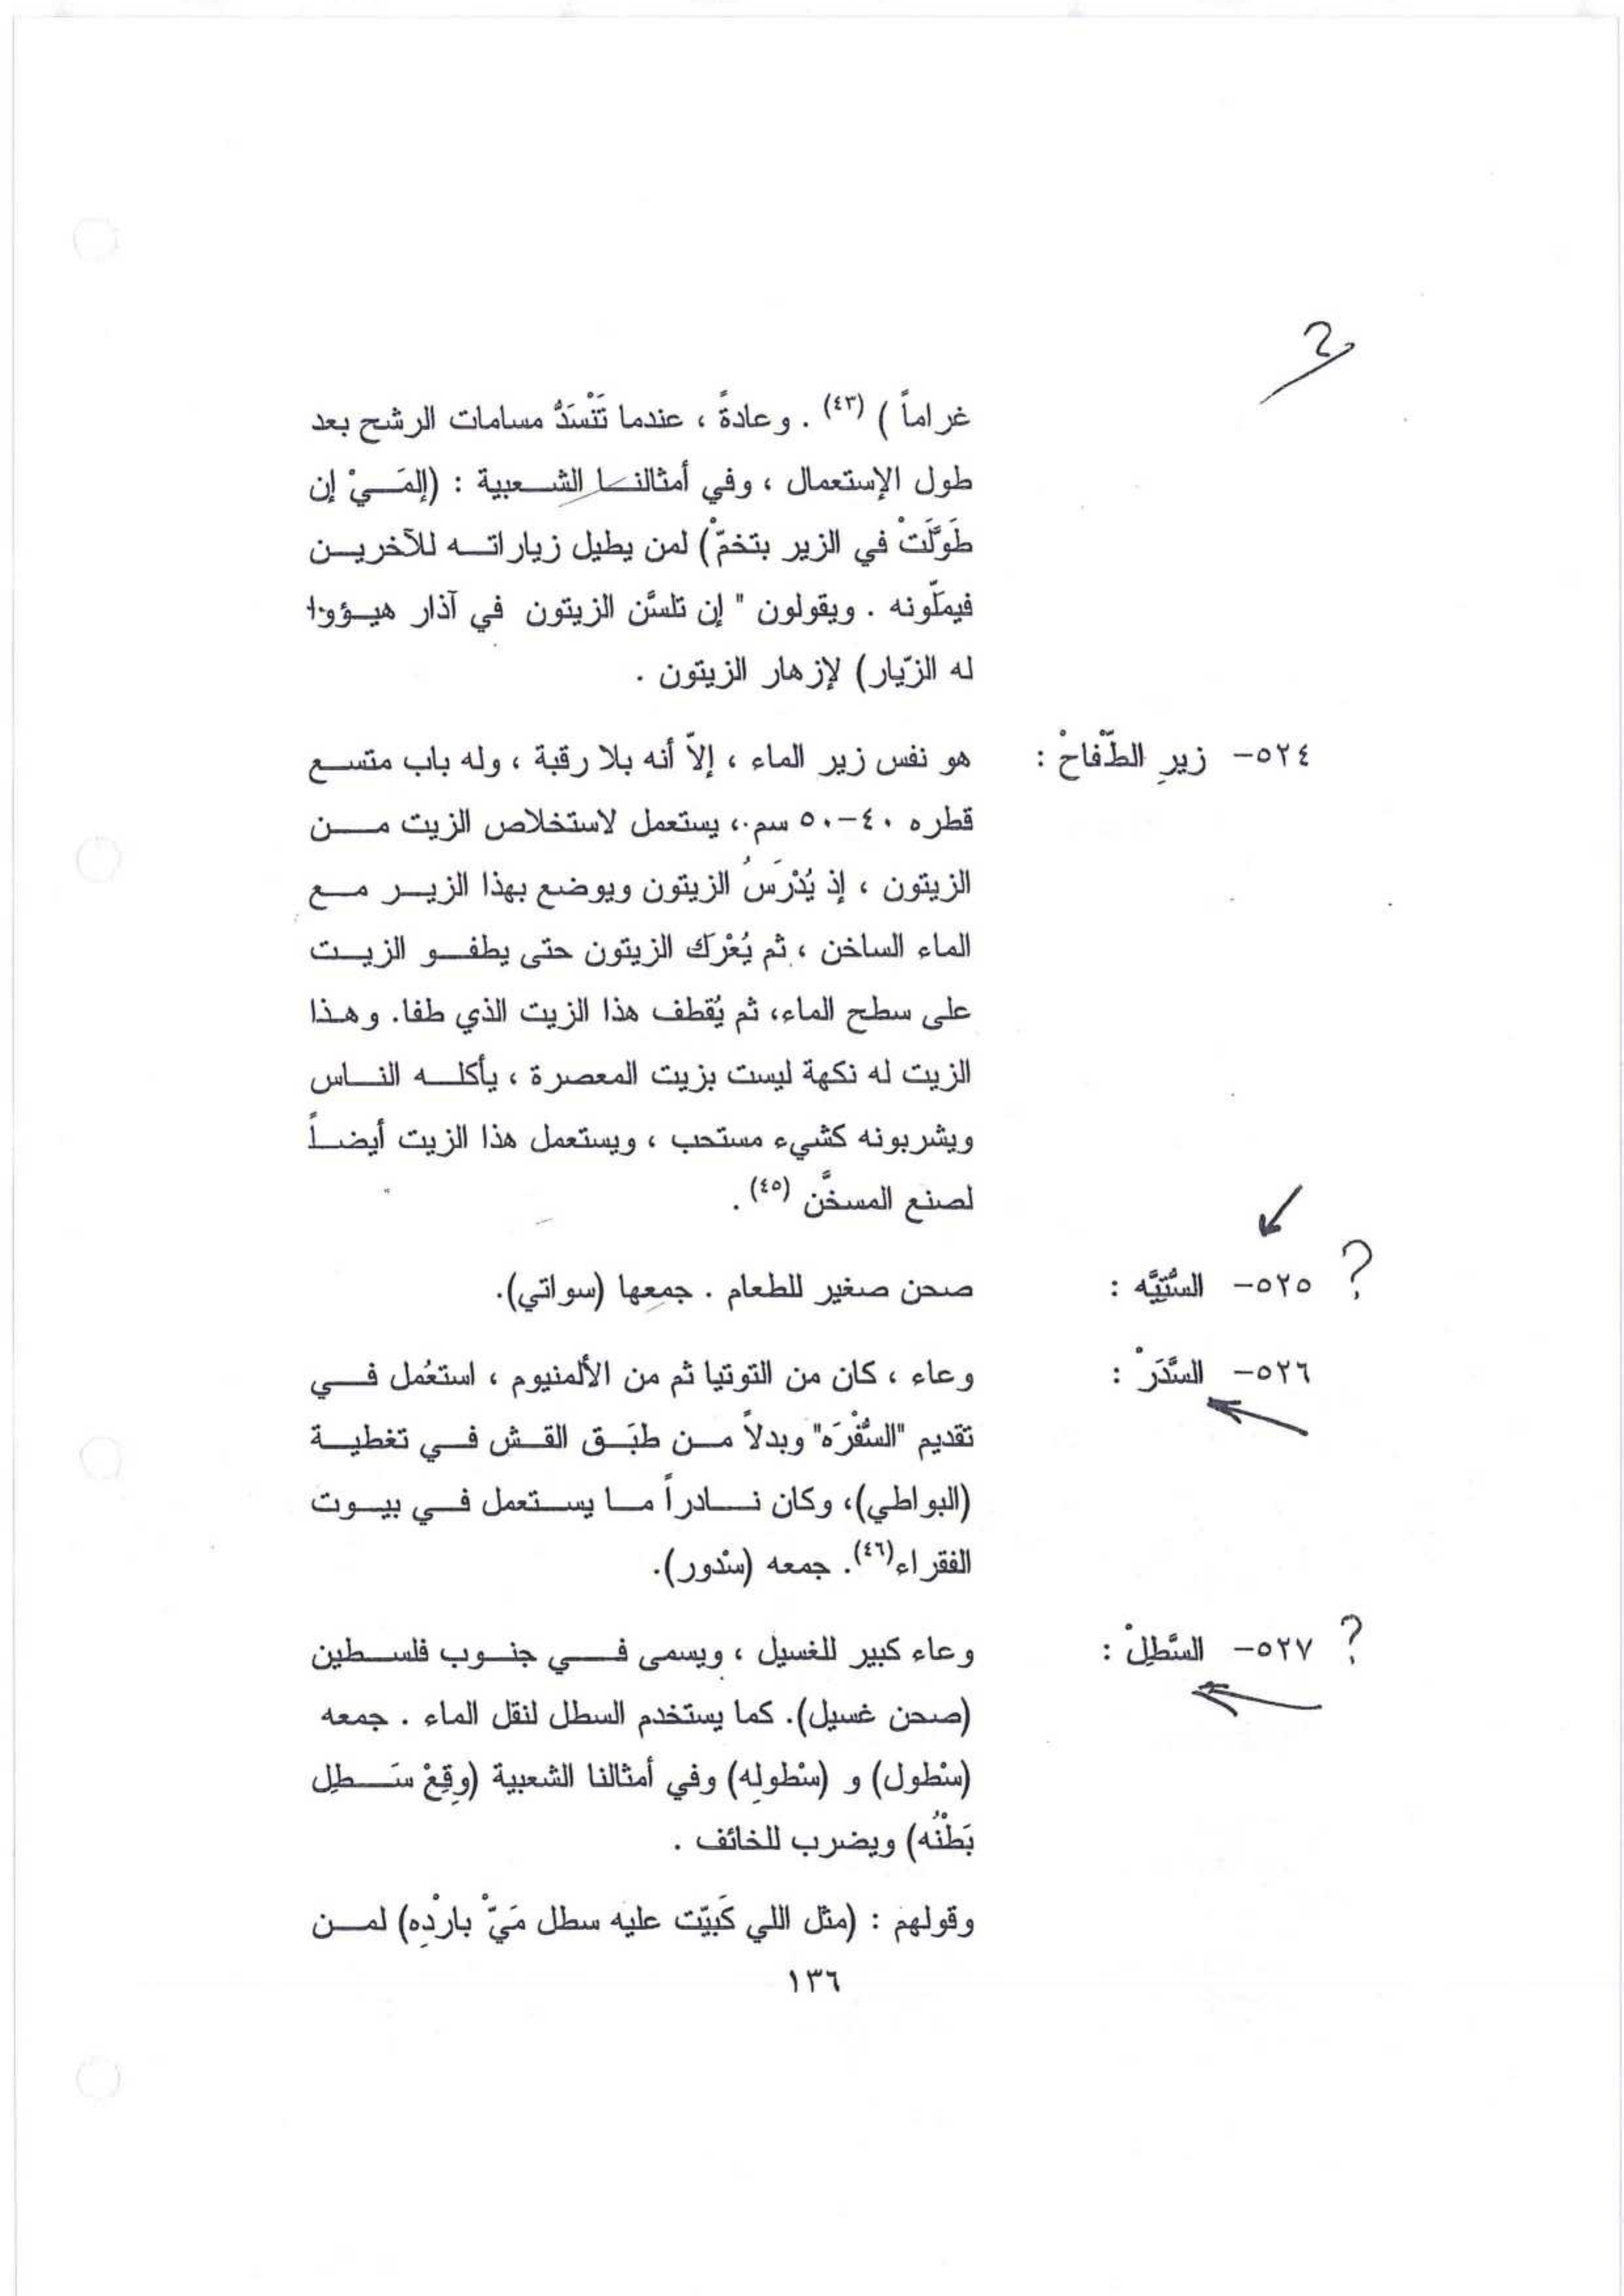 2
غراماً ) (٤٣) . وعادةً ، عندما تَنْسَدُّ مسامات الرشح بعد
طول الإستعمال ، وفي أمثالنا الشعبية : (إلمَيْ إن
طَوَّلَتْ في الزير بتخمّْ) لمن يطيل زياراته للآخرين
فيملّونه . ويقولون " إن تلسَّن الزيتون في آذار هيؤوا
له الزّيار) لإزهار الزيتون .
٥٢٤- زيرِ الطّْفاحْ : هو نفس زير الماء ، إلاّ أنه بلا رقبة ، وله باب متسع
قطره ٤٠-٥٠ سم.، يستعمل لاستخلاص الزيت من
الزيتون ، إذ يُدْرَسُ الزيتون ويوضع بهذا الزير مع
الماء الساخن ، ثم يُعْرَك الزيتون حتى يطفو الزيت
على سطح الماء، ثم يُقطف هذا الزيت الذي طفا. وهذا
الزيت له نكهة ليست بزيت المعصرة ، يأكله الناس
ويشربونه كشيء مستحب ، ويستعمل هذا الزيت أيضاً
لصنع المسخَّن (٤٥) .
? ٥٢٥- السُّتِيَّه : صحن صغير للطعام . جمعها (سواتي).
٥٢٦- السَّدَرْ : وعاء ، كان من التوتيا ثم من الألمنيوم ، استعُمل في
تقديم "السُّفْرَه" وبدلاً من طبَق القش في تغطية
(البواطي)، وكان نادراً ما يستعمل في بيوت
الفقراء(٤٦). جمعه (سْدور).
? ٥٢٧- السَّطِلْ : وعاء كبير للغسيل ، ويسمى في جنوب فلسطين
(صحن غسيل). كما يستخدم السطل لنقل الماء . جمعه
(سْطول) و (سْطولِه) وفي أمثالنا الشعبية (وِقِعْ سَطِل
بَطْنُه) ويضرب للخائف .
وقولهم : (مثل اللي كَبيّت عليه سطل مَيّْ بارْدِه) لمن
١٣٦